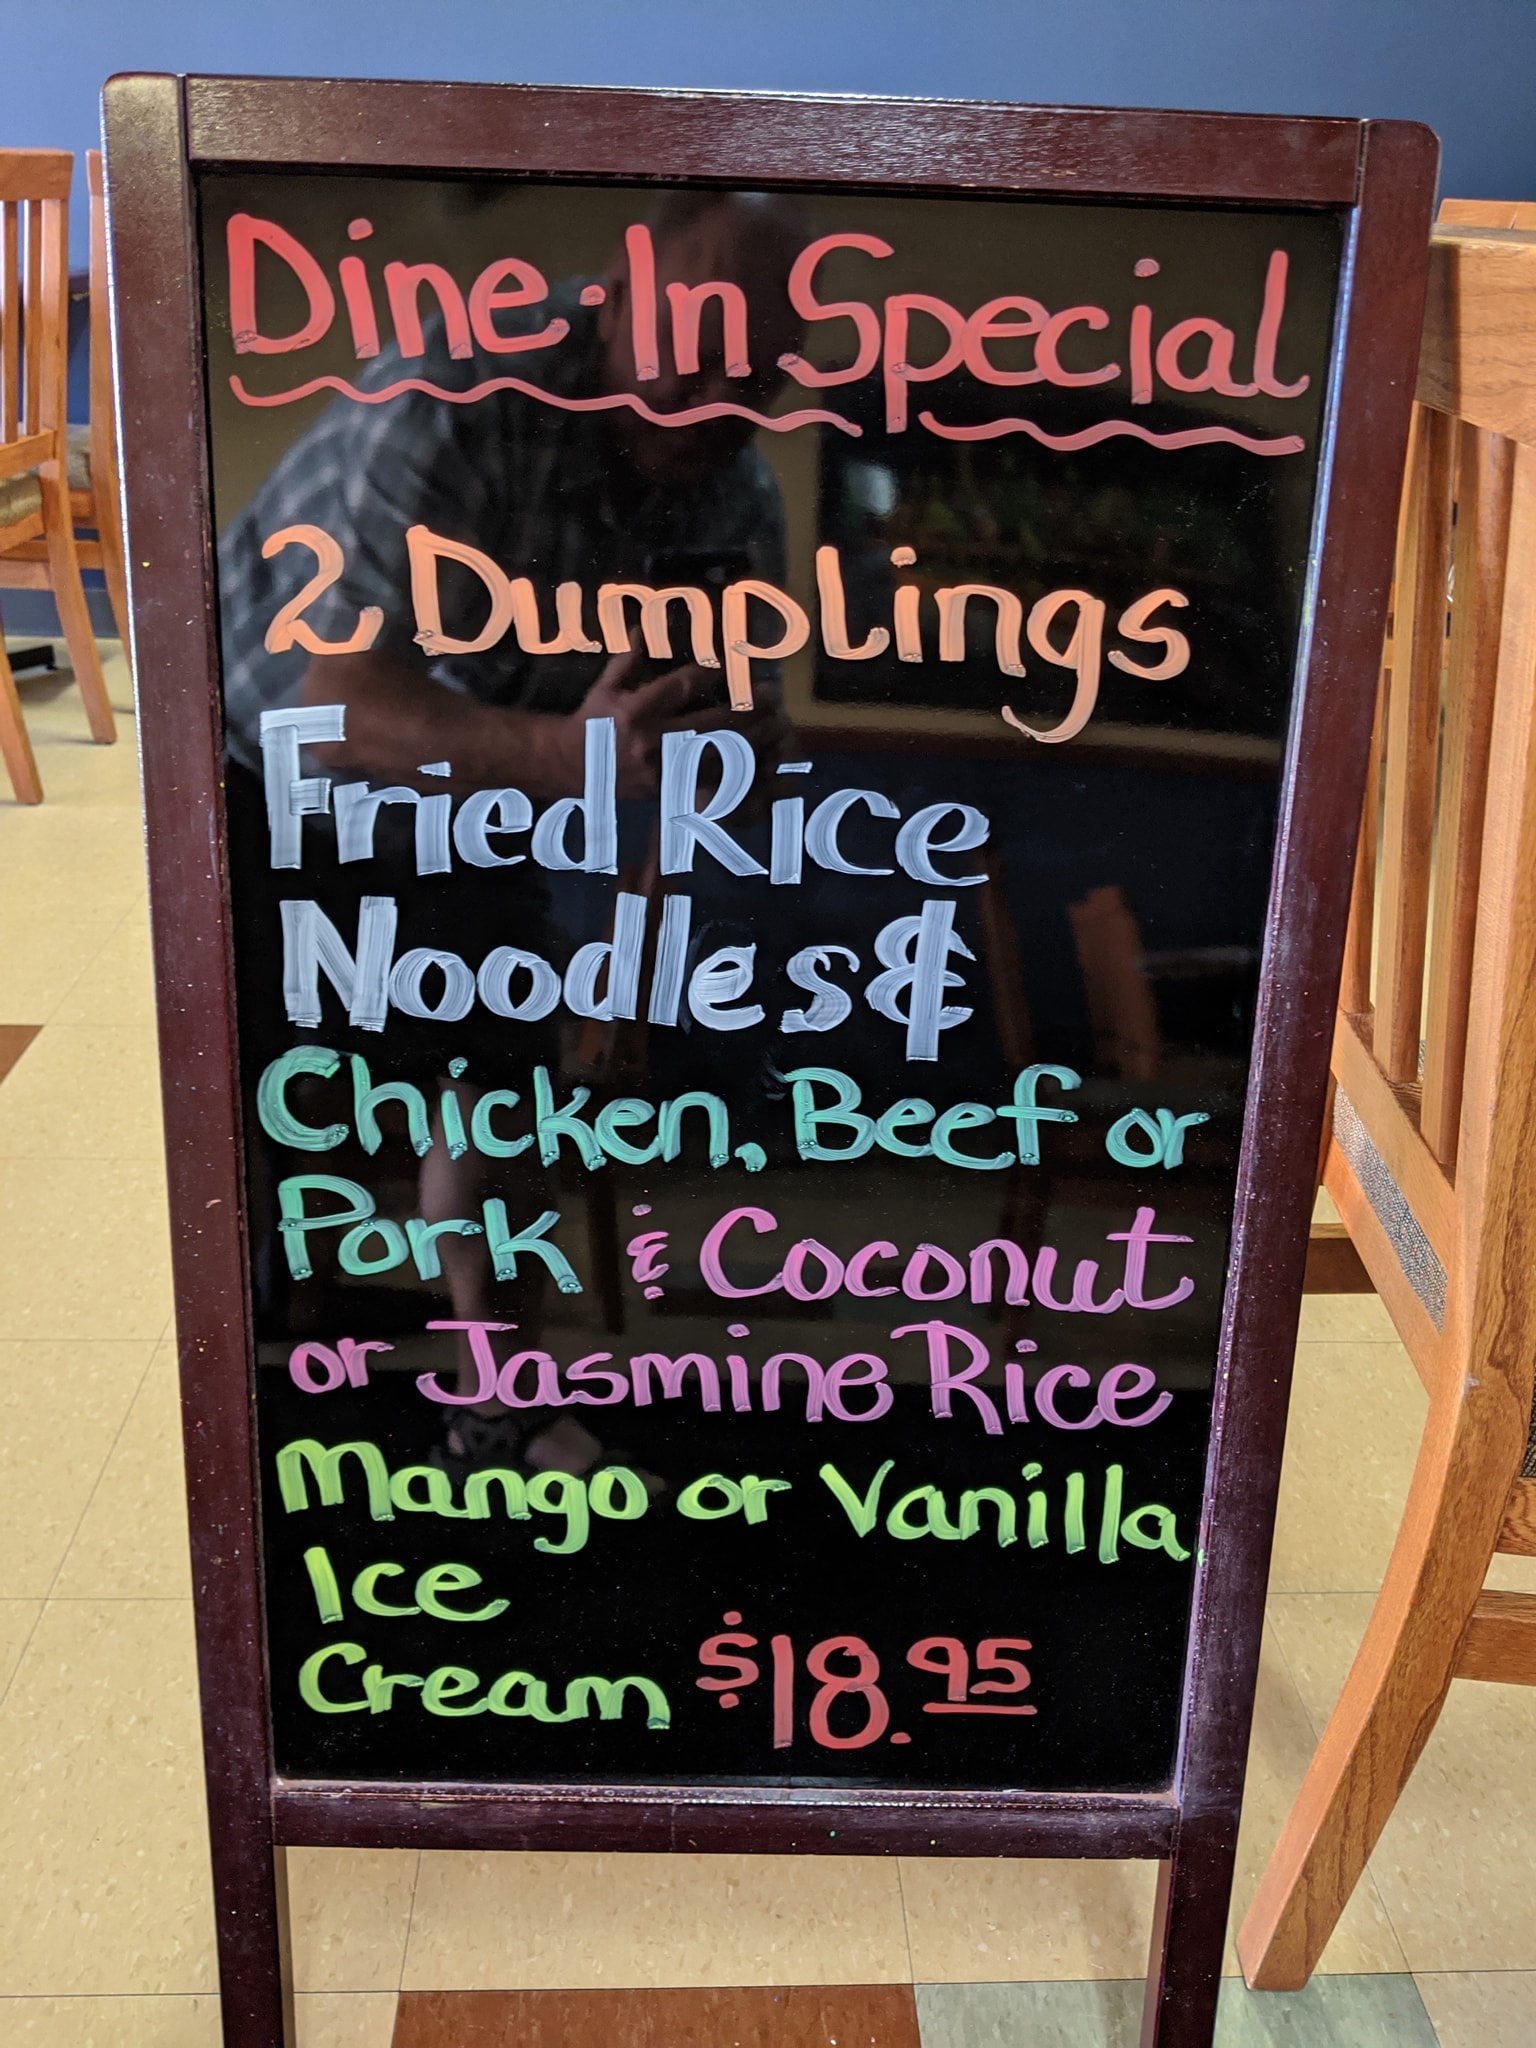 Dine-In Special
2 Dumplings
Fried Rice
Noodles &
Chicken, Beef or
Pork & Coconut
or Jasmine Rice
Mango or Vanilla
Ice
Cream $18.95